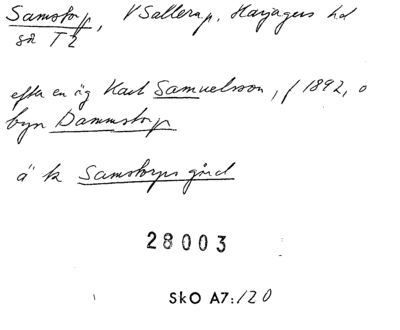 Samstorp, V Sallerup, Harjagers hd
så T2
efter en äg Karl Samuelsson, f 1892, o
byn Dammstorp
ä k Samstorps gård
28003
SkO A7:120